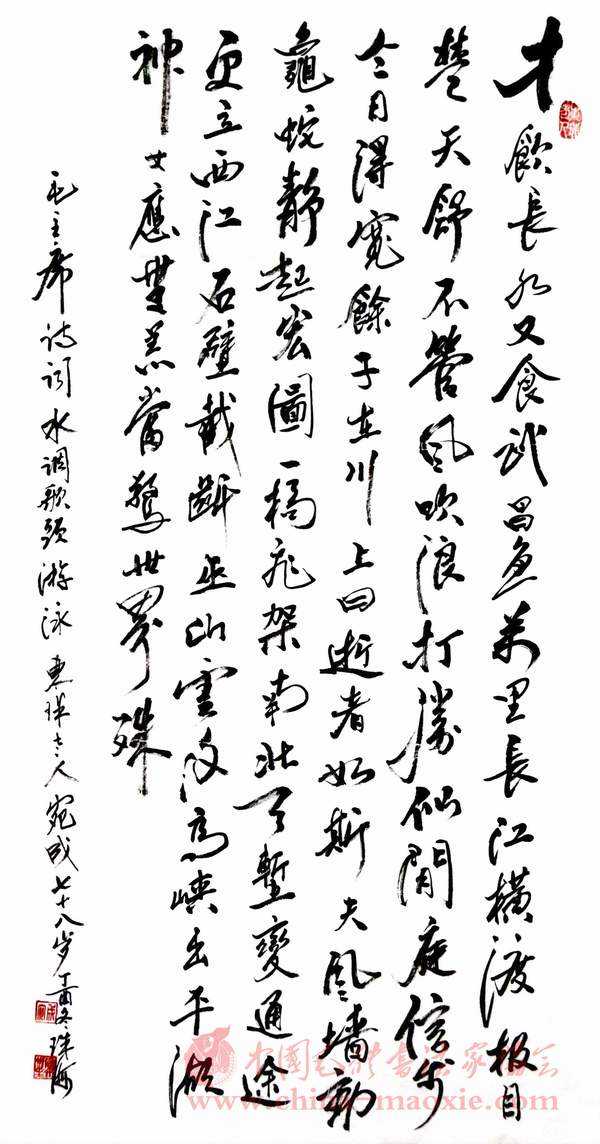 才飲長水又食武昌魚萬里長江橫渡極目
楚天舒不管風吹浪打勝似閒庭信步
今日得寬餘子在川上曰逝者如斯夫風墻動
龜蛇靜起宏圖一橋飛架南北天塹變通途
更立西江石壁截斷巫山雲雨高峽出平湖
神女應無恙當驚世界殊
毛主席诗词水調歌頭游泳東珠老人宛成七十八岁丁酉冬珠海
中國毛體書法家協會
www.china-maoxie.com